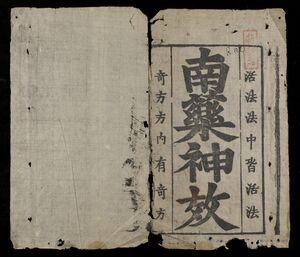 活法法中皆活法
南藥神效
奇方方內有奇方